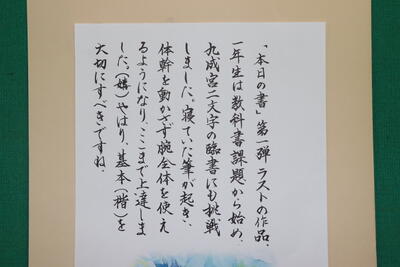 「本日の書」第一弾ラストの作品。
一年生は教科書課題から始め、
九成宮二文字の臨書にも挑戦
しました。寝ていた筆が起き、
体幹を動かさず腕全体を使え
るようになり、ここまで上達しま
した。(嬉)やはり、基本(楷)を
大切にすべきですね。